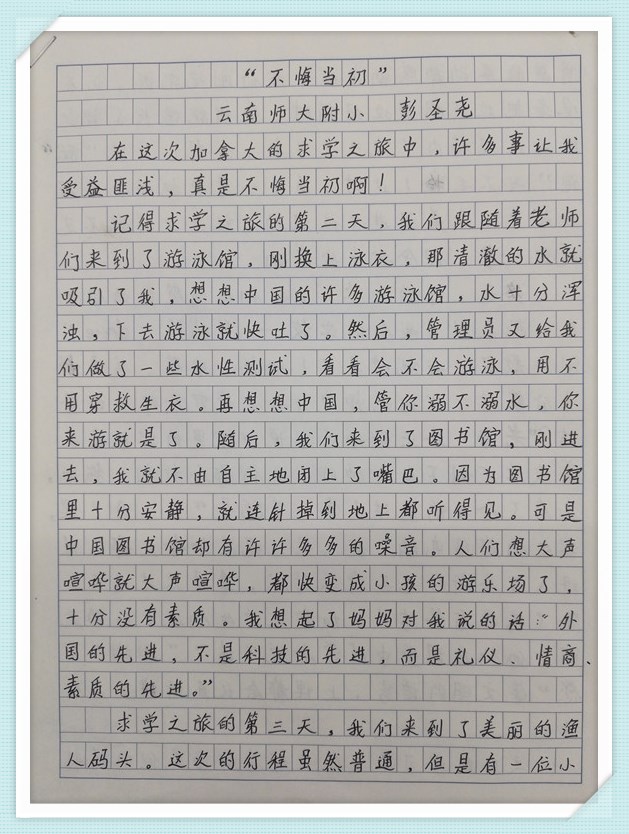 “不悔当初”
云南师大附小 彭圣尧
在这次加拿大的求学之旅中，许多事让我
受益匪浅，真是不悔当初啊！
记得求学之旅的第二天，我们跟随着老师
们来到了游泳馆，刚换上泳衣，那清澈的水就
吸引了我，想想中国的许多游泳馆，水十分浑
浊，下去游泳就快吐了。然后，管理员又给我
们做了一些水性测试，看看会不会游泳，用不
用穿救生衣。再想想中国，管你溺不溺水，你
来游就是了。随后，我们来到了图书馆，刚进
去，我就不由自主地闭上了嘴巴。因为图书馆
里十分安静，就连针掉到地上都听得见。可是
中国图书馆却有许许多多的噪音。人们想大声
喧哗就大声喧哗，都快变成小孩的游乐场了，
十分没有素质。我想起了妈妈对我说的话：“外
国的先进，不是科技的先进，而是礼仪、情商、
素质的先进。”
求学之旅的第三天，我们来到了美丽的渔
人码头。这次的行程虽然普通，但是有一位小